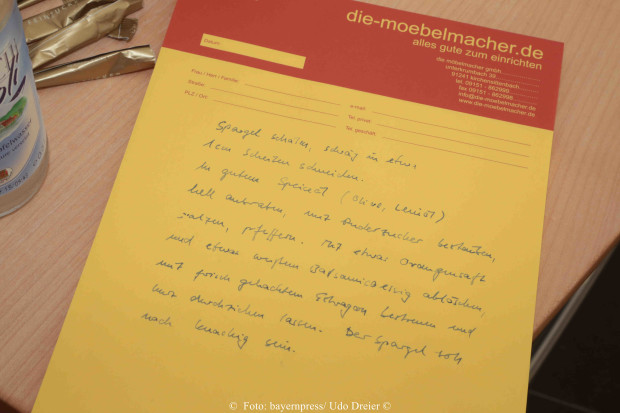 die-moebelmacher.de
alles gute zum einrichten
die möbelmacher gmbh
unterkrumbach 39
91241 kirchensittenbach
tel. 09151 - 862999
fax 09151 - 862998
info@die-moebelmacher.de
www.die-moebelmacher.de
Datum:
Frau / Herr / Familie:
Straße:
PLZ / Ort:
e-mail:
Tel. privat:
Tel. geschäftl.:
Spargel schälen, schräg in etwa
1cm Scheiben schneiden.
In gutem Speiseöl (Olive, Leinöl)
hell anbraten, mit Puderzucker bestäuben,
salzen, pfeffern. Mit etwas Orangensaft
und etwas weißem Balsamicoessig ablöschen,
mit frisch gehacktem Estragon bestreuen und
kurz durchziehen lassen. Der Spargel soll
noch knackig sein.
© Foto: bayernpress/ Udo Dreier ©